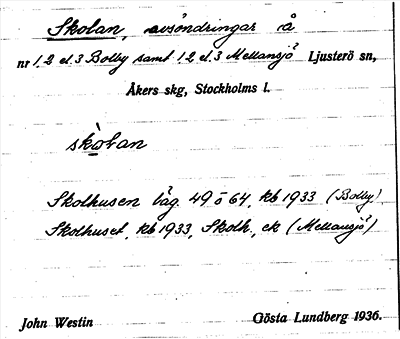 Skolan, avsöndringar å
nr 1, 2 el. 3 Bolby samt 1, 2 el. 3 Mellansjö Ljusterö sn,
Åkers skg, Stockholms l.
skòlan
Skolhusen läg. 49 o 64, kb 1933 (Bolby)
Skolhuset, kb 1933, Skolh., ek (Mellansjö)
John Westin Gösta Lundberg 1936.